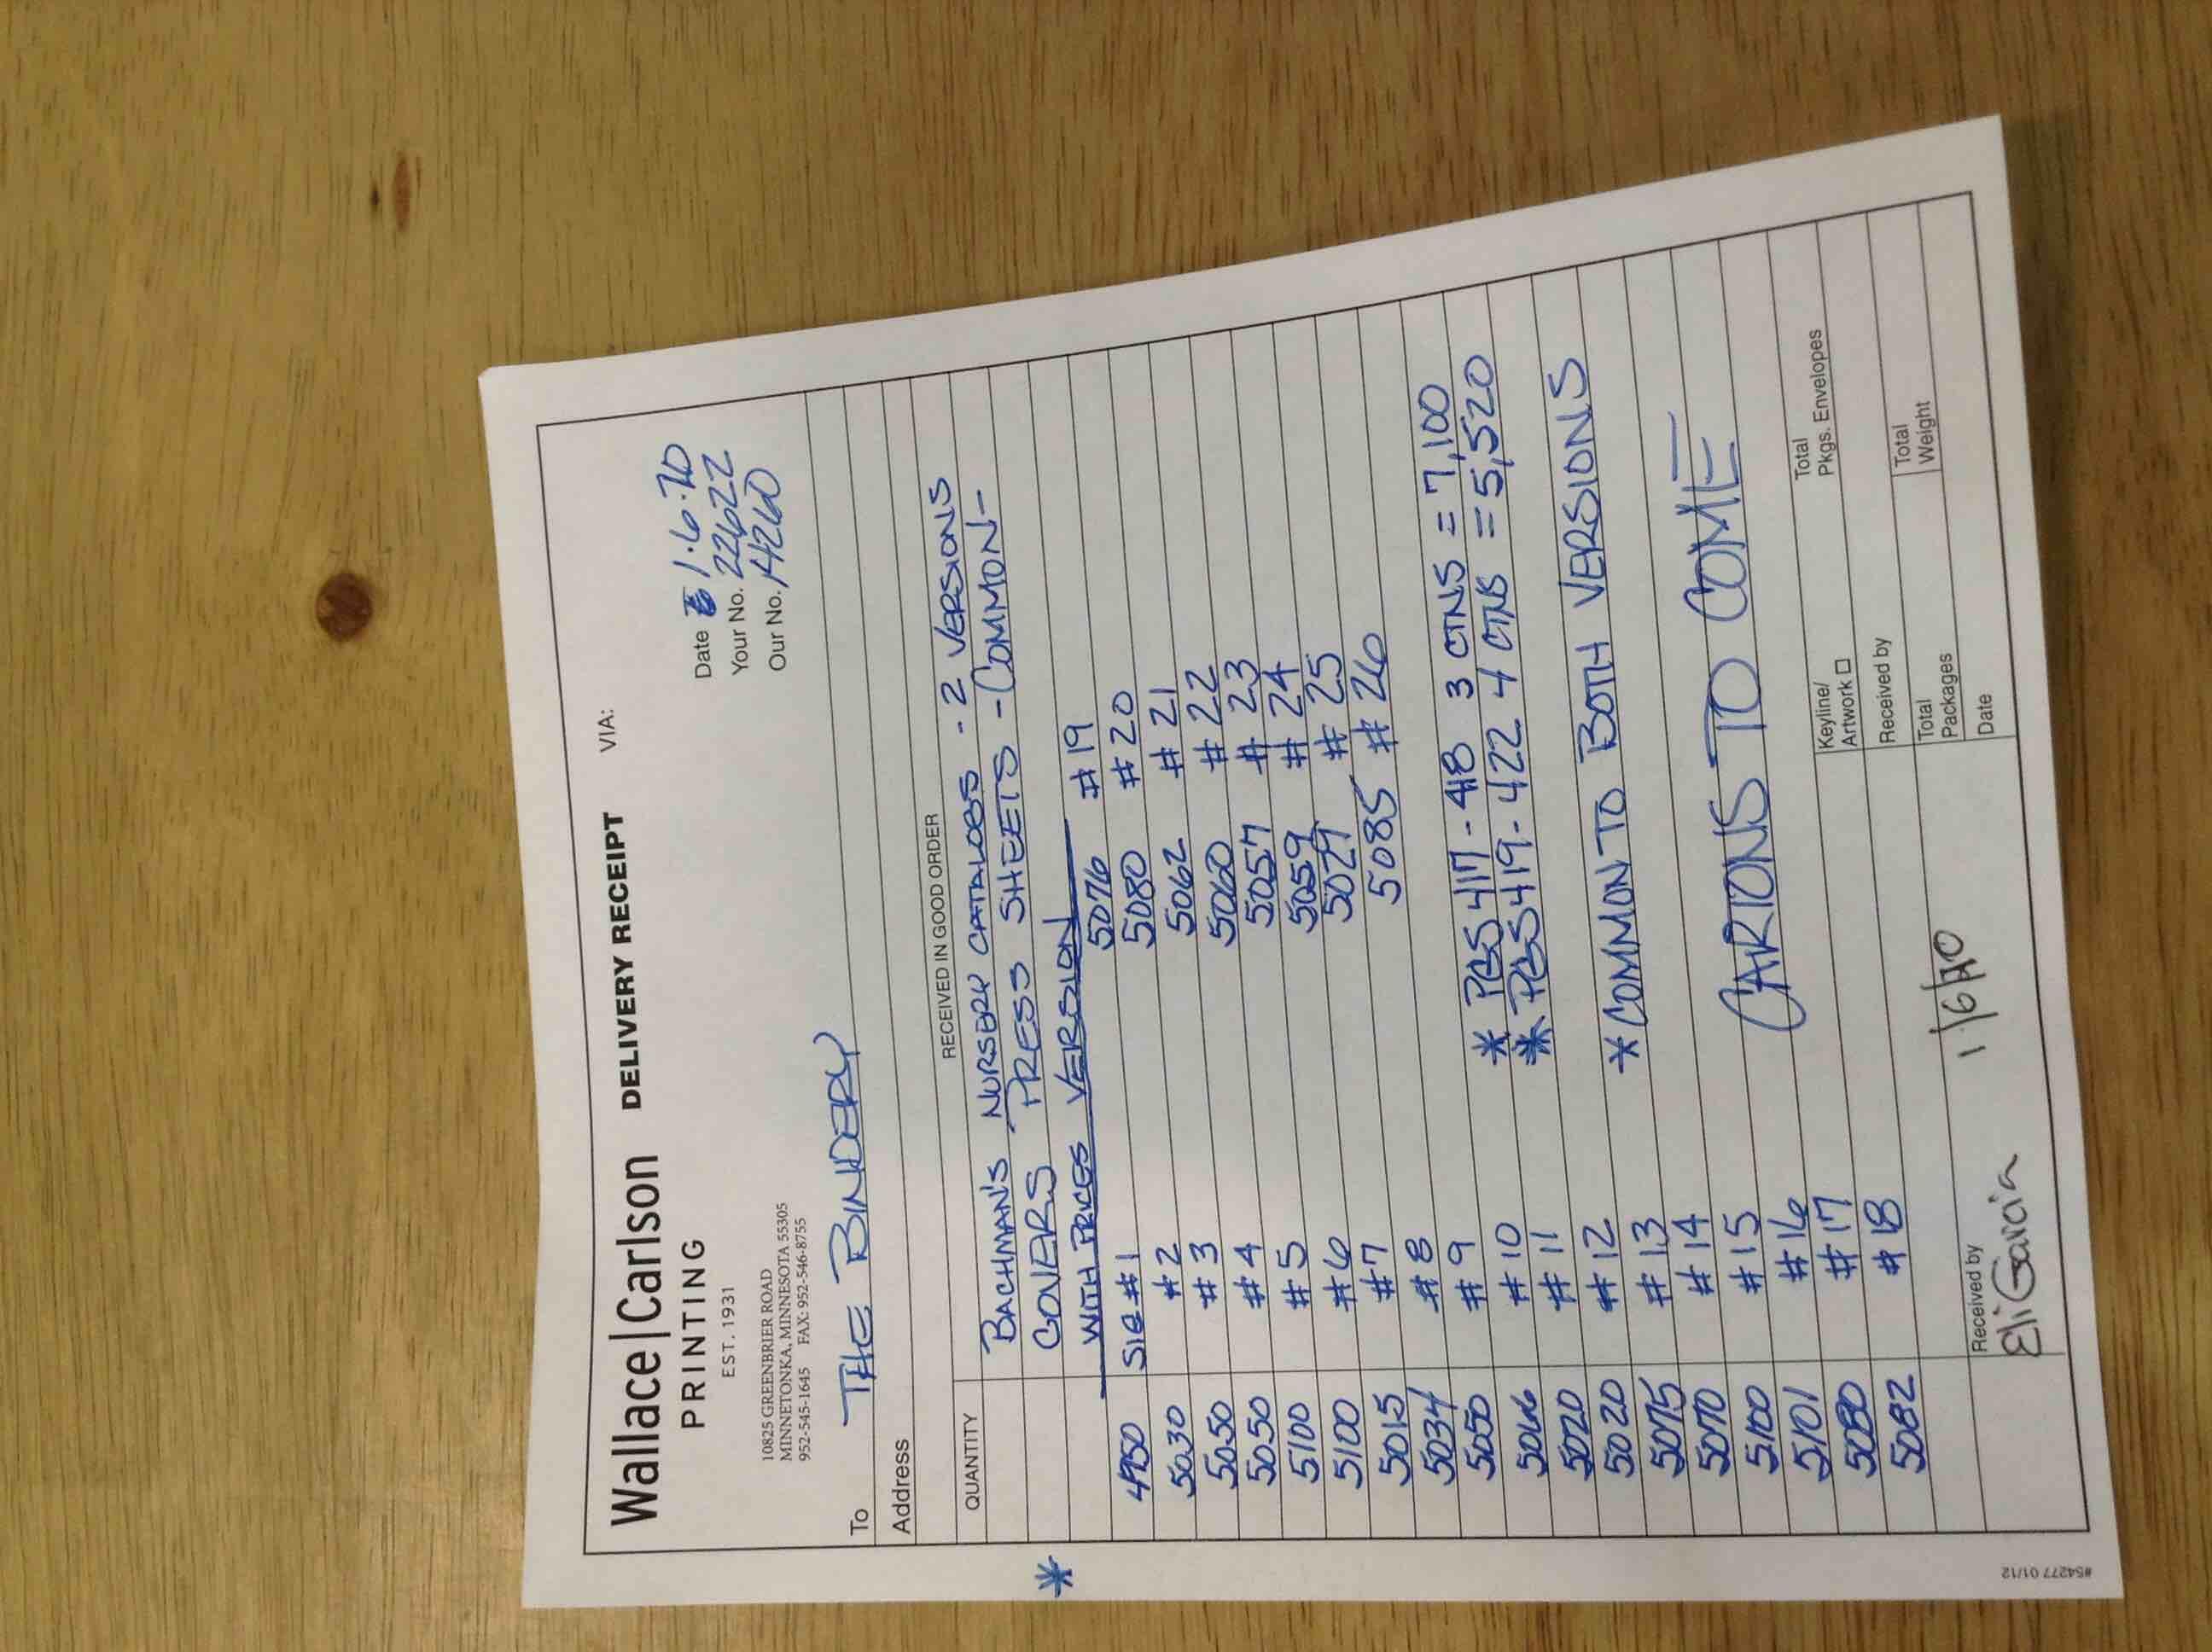 Wallace|Carlson DELIVERY RECEIPT VIA:
PRINTING
EST. 1931
Date 1.6.20
Your No. 22622
Our No. 14260
10825 GREENBRIER ROAD
MINNETONKA, MINNESOTA 55305
952-545-1645 FAX: 952-546-8755
To THE BINDERY
Address
RECEIVED IN GOOD ORDER
QUANTITY
BACHMAN'S NURSERY CATALOGS - 2 VERSIONS
* COVERS PRESS SHEETS - COMMON-
WITH PRICES VERSION
4950 SIG #1 5076 #19
5030 #2 5080 #20
5050 #3 5062 #21
5050 #4 5060 #22
5100 #5 5057 #23
5100 #6 5059 #24
5015 #7 5029 #25
5034 #8 5085 #26
5050 #9
5066 #10 * PGS 417-418 3 CTNS = 7,100
5020 #11 * PGS 419-422 4 CTNS = 5,520
5020 #12
5075 #13 * COMMON TO BOTH VERSIONS
5070 #14
5100 #15
5101 #16 CARTONS TO COME
5080 #17
5082 #18
Keyline/
Artwork
Total
Pkgs. Envelopes
Received by
Total
Packages
Total
Weight
Received by
Eli Garcia 1/6/20
Date
#54277 01/12